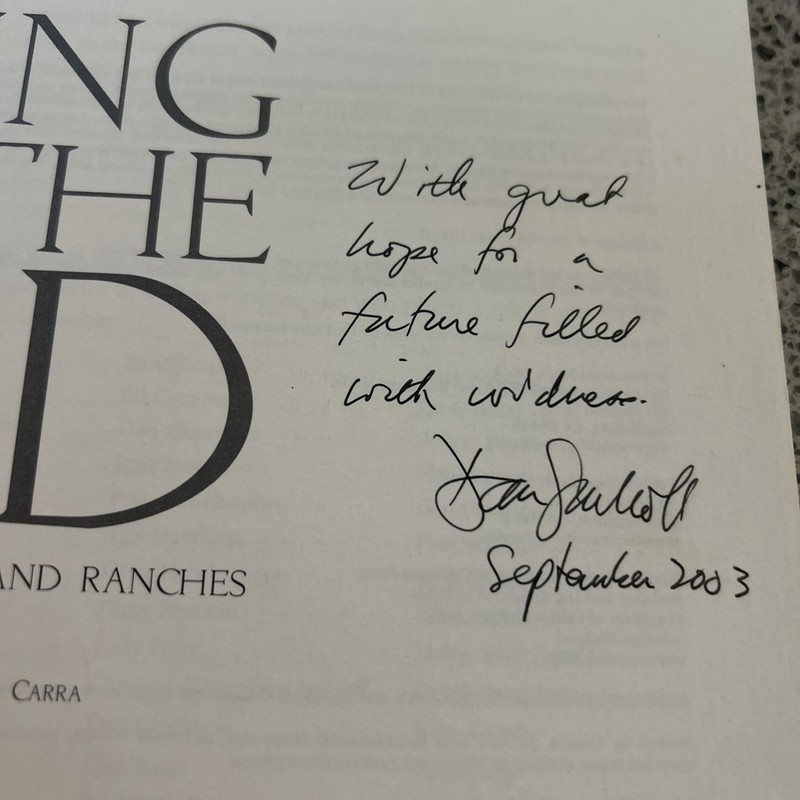 ING
THE
D
AND RANCHES
CARRA
With great
hope for a
future filled
with wildness.
Dan Imhoff
September 2003